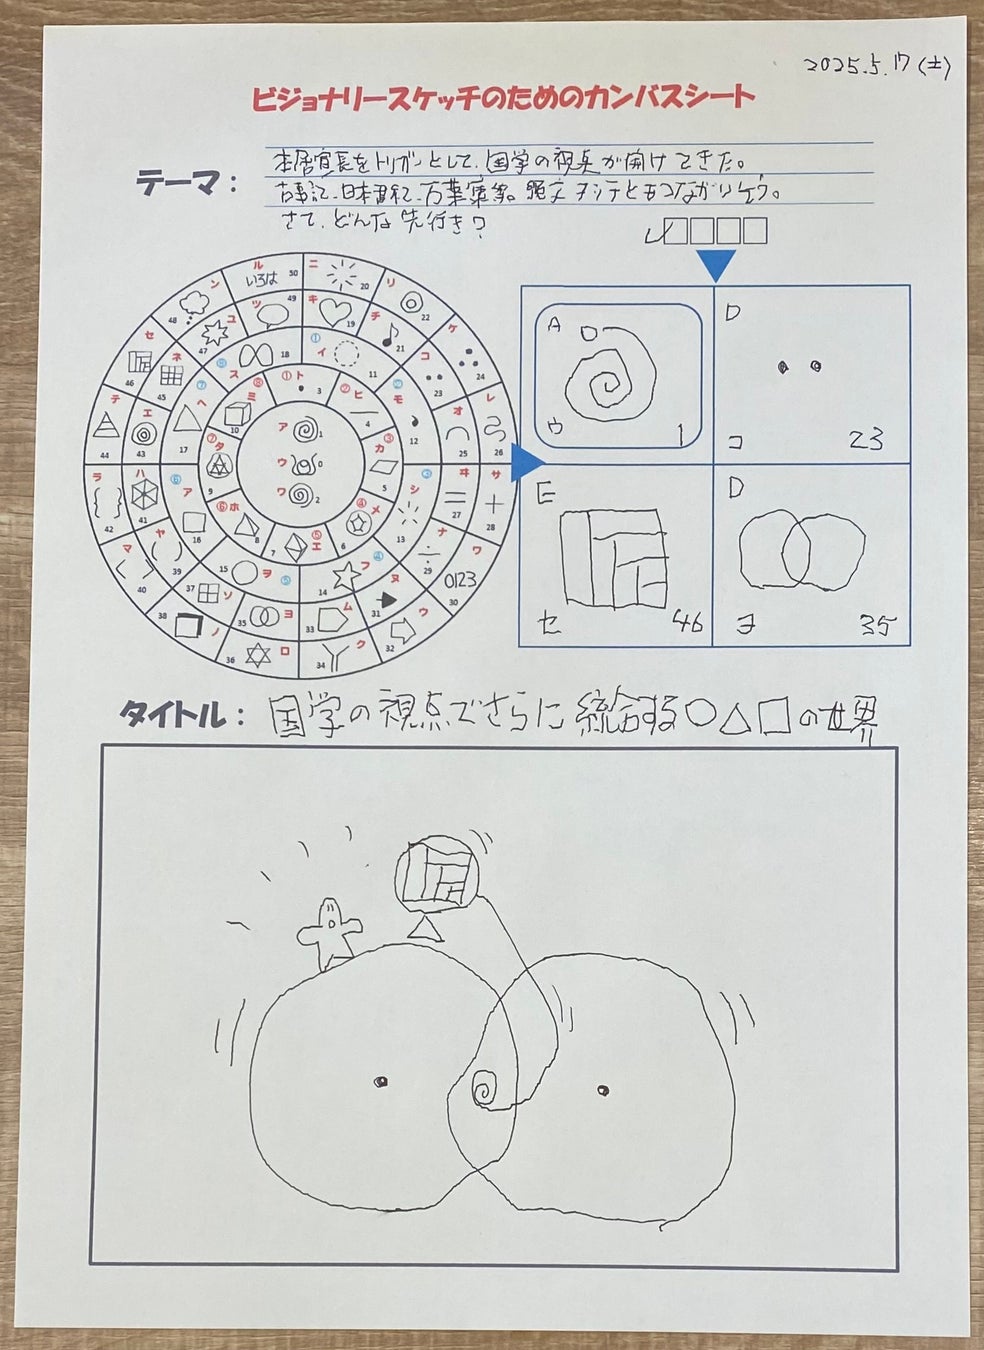 2025.5.17(土)
ビジョナリースケッチのためのカンバスシート
テーマ:
本居宣長をトリガーとして、国学の視点が開けてきた。
古事記、日本書紀、万葉集等。縄文 ヲシテともつながりそう。
さて、どんな先行き?
ル いろは 50
ニ 20
リ 22
ケ 24
レ 26
サ 28
ワ 0123 30
ウ 32
ク 34
ロ 36
ノ 38
マ 40
ラ 42
テ 44
セ 46
ン 48
ツ 49
キ 19
チ 21
コ 23
オ 25
ヰ 27
ナ 29
ヌ 31
ム 33
ヨ 35
ソ 37
ヤ 39
ハ 41
エ 43
ネ 45
ユ 47
① イ 11
モ 12
③ シ 13
④ フ 14
⑤ ヲ 15
⑥ ア 16
⑦ ヘ 17
ス 18
① ト 3
② ヒ 4
③ カ 5
④ メ 6
⑤ エ 7
⑥ ホ 8
⑦ タ 9
⑧ ミ 10
ア 1
ウ 0
ワ 2
A
ウ 1
D
コ 23
E
セ 46
D
ヨ 35
タイトル: 国学の視点でさらに統合する○△□の世界